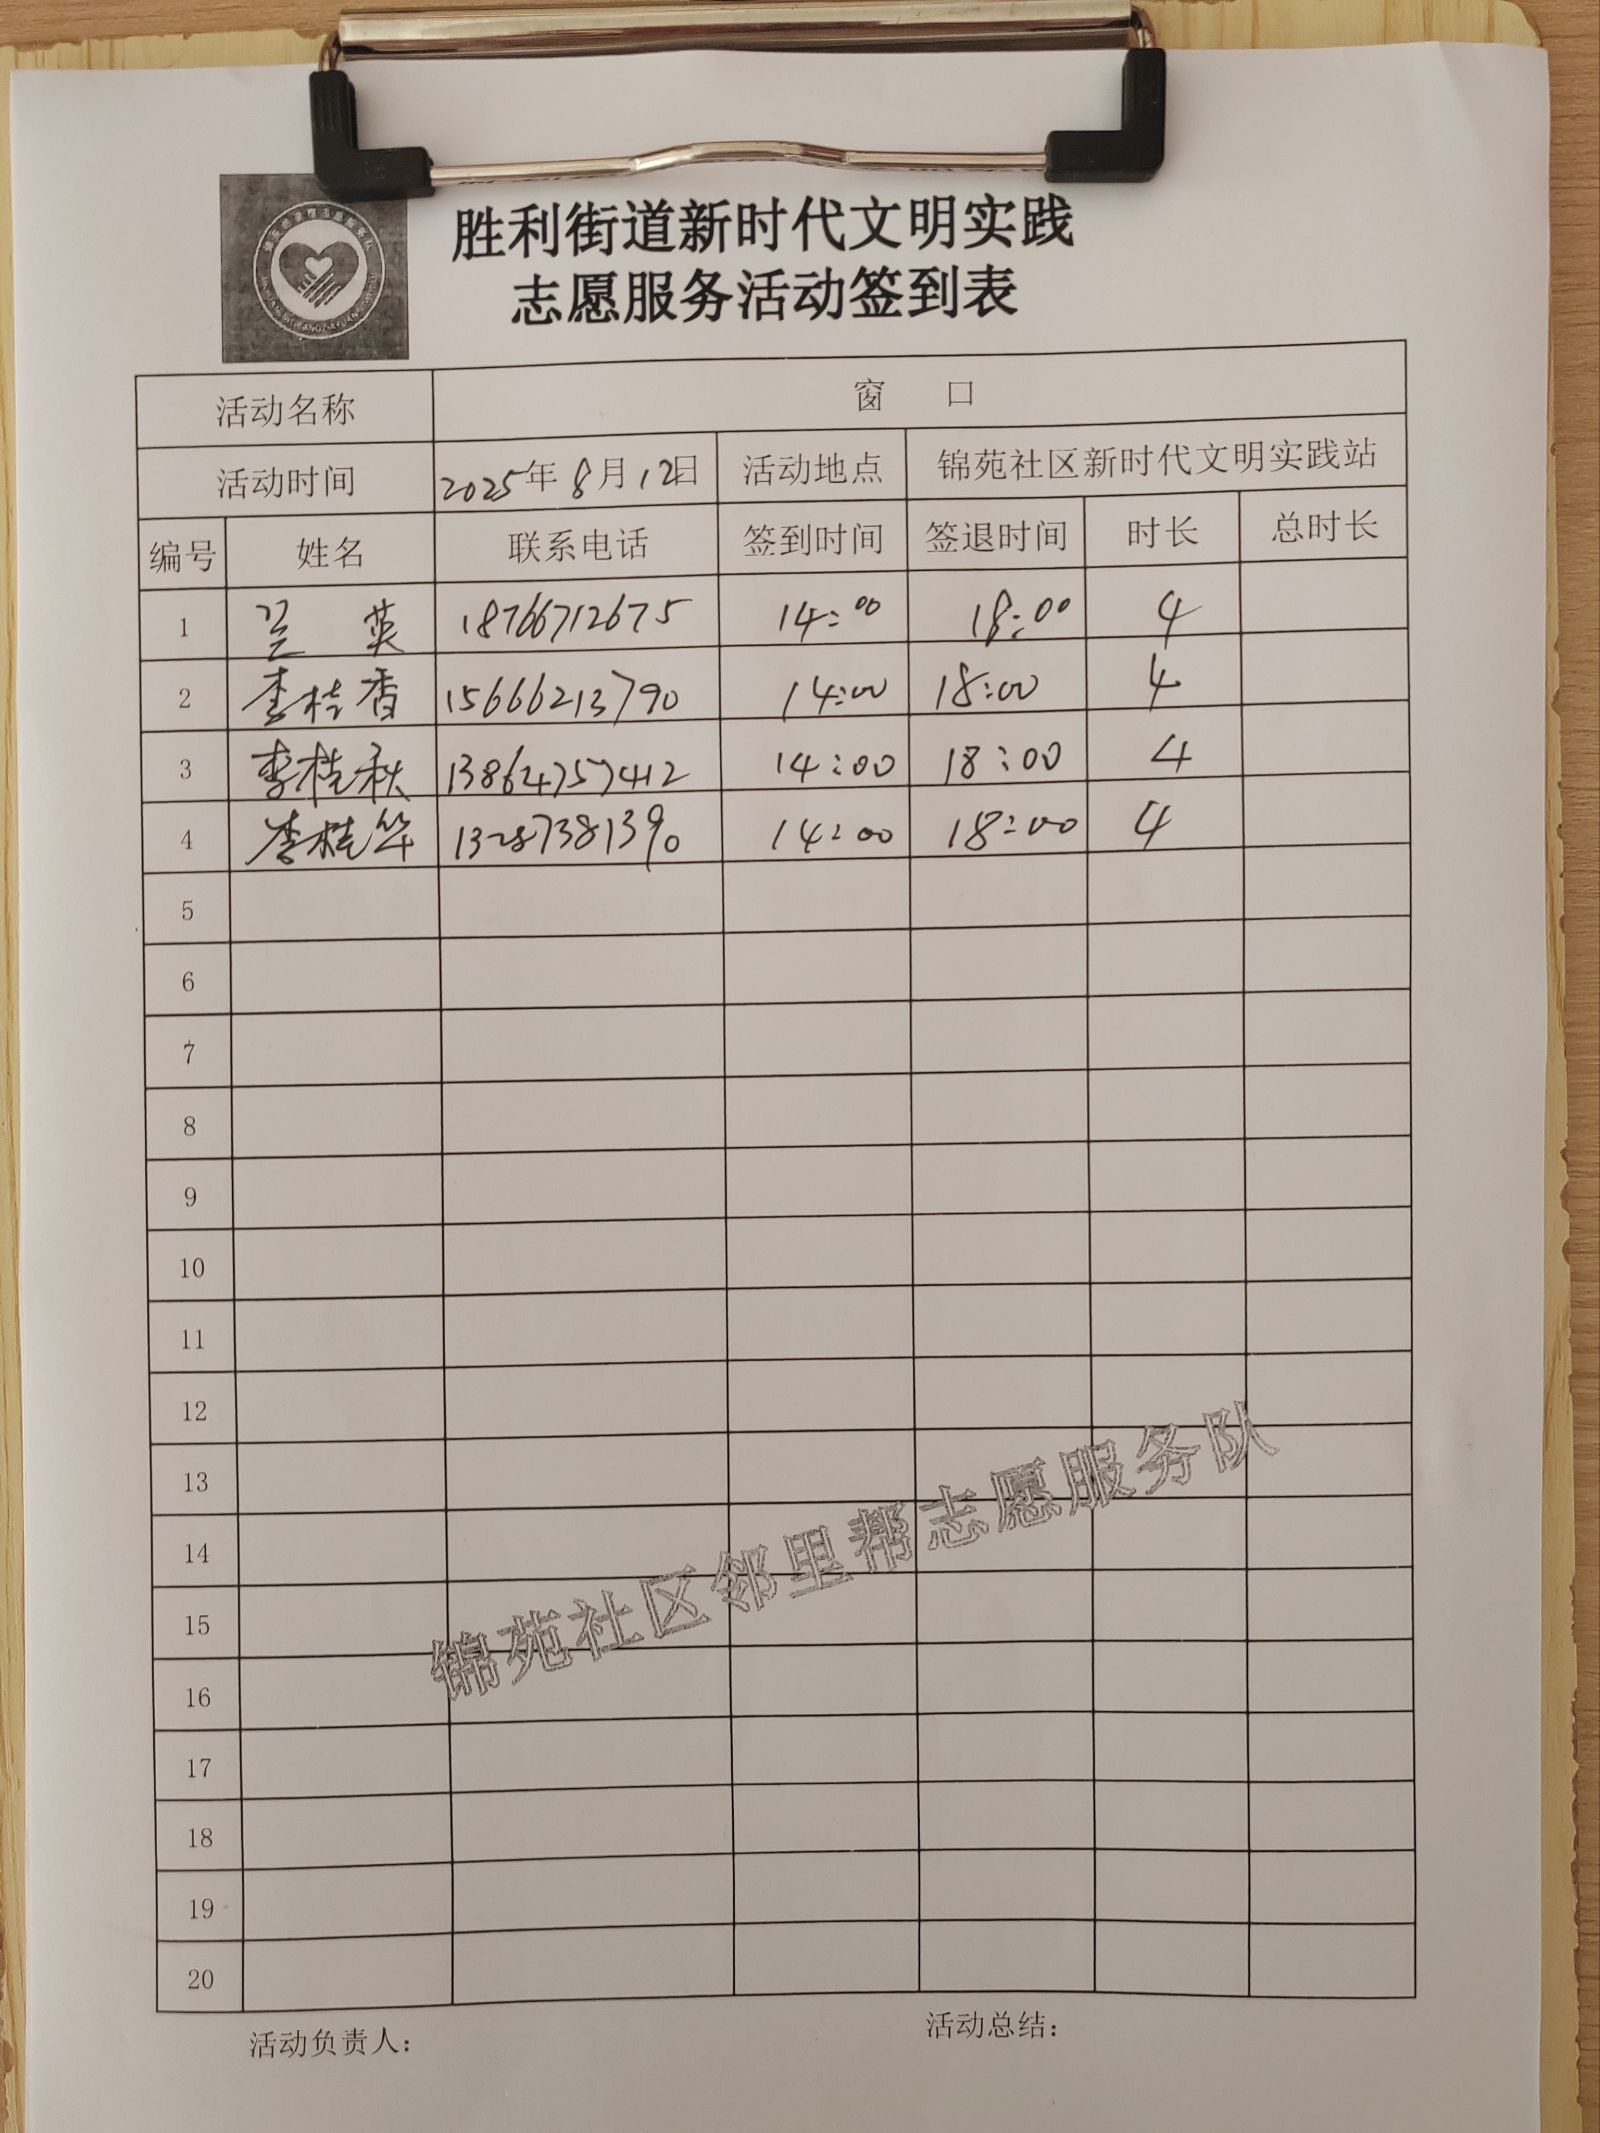 胜利街道新时代文明实践
志愿服务活动签到表
活动名称 窗 口
活动时间 2025年8月12日 活动地点 锦苑社区新时代文明实践站
编号 姓名 联系电话 签到时间 签退时间 时长 总时长
1 兰 英 18766712675 14:00 18:00 4
2 李桂香 15666213790 14:00 18:00 4
3 李桂秋 13864757412 14:00 18:00 4
4 李桂华 13287381390 14:00 18:00 4
5
6
7
8
9
10
11
12
13
14
15
16
17
18
19
20
锦苑社区邻里帮志愿服务队
活动负责人： 活动总结：